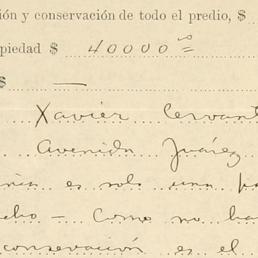 ión y conservación de todo el predio, $
piedad $ 40000 00
$ —
Xavier Cervant
Avenida Juárez
es solo una pa
cho — Como no ha
conservación es el